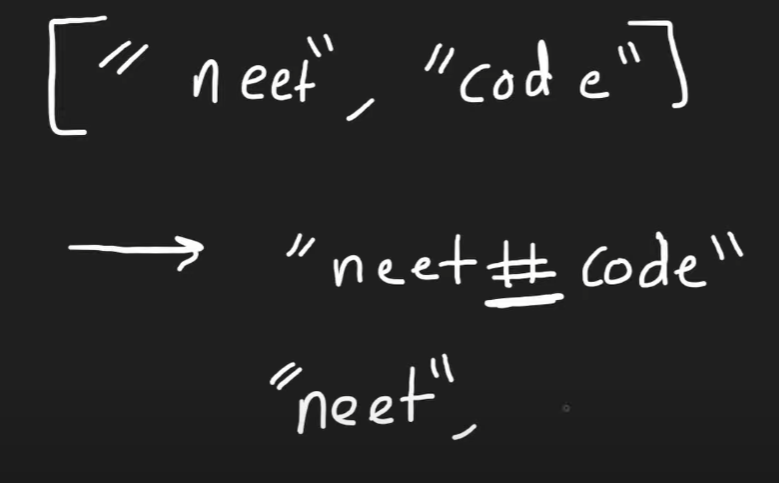 ["neet", "code"]
→ "neet#code"
"neet",